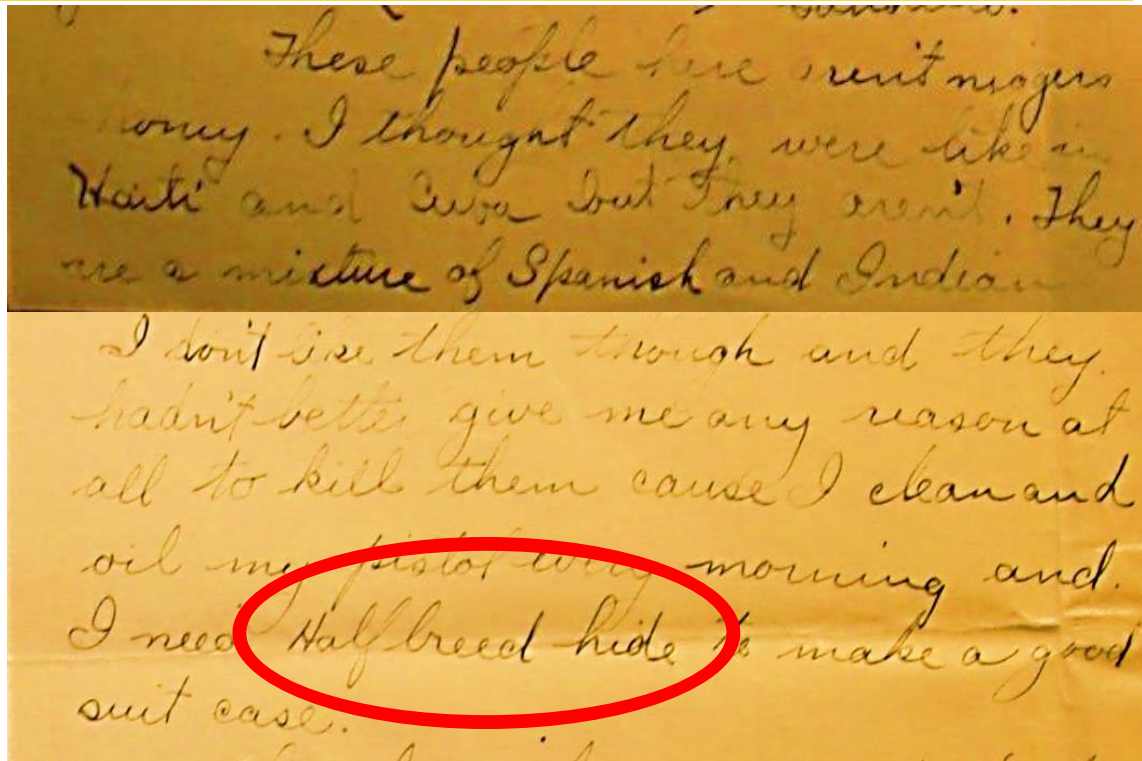 sunshine.
These people here arent niggers
honey. I thought they were like in
Haiti and Cuba but they aren't. They
are a mixture of Spanish and Indian
I don't like them though and they
hadn't better give me any reason at
all to kill them cause I clean and
oil my pistol every morning and
I need Halfbreed hide to make a good
suit case.